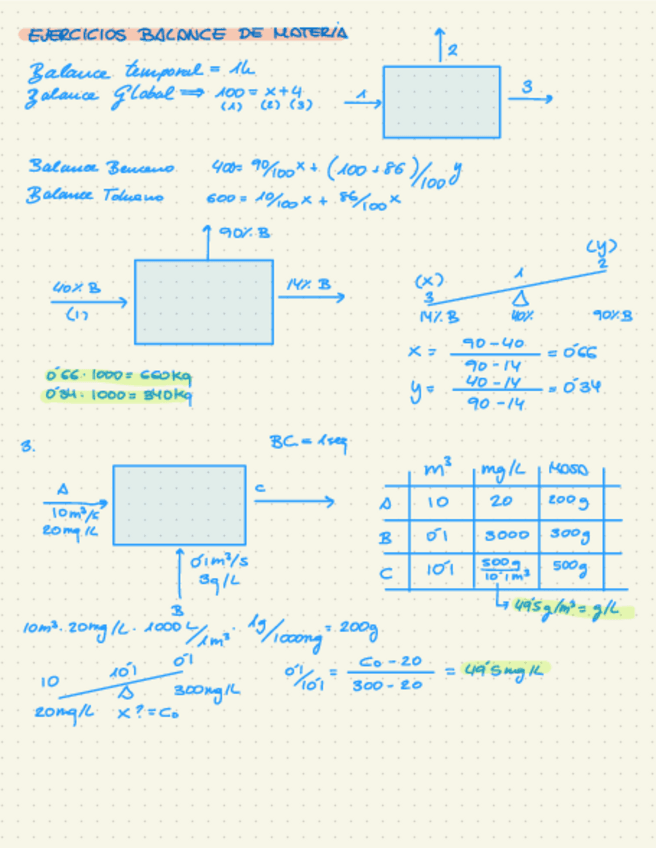 EJERCICIOS BALANCE DE MATERIA
Balance temporal = 1h
Balance Global ⟹ 100 = x+4
(1) (2) (3)
1
2
3
Balance Benceno 400= 90/100 x + (100-86)/100 y
Balance Tolueno 600 = 10/100 x + 86/100 x
90% B
40% B
(1)
14% B
(y)
2
1
(x)
3
14% B 40% 90% B
x = 90-40 / 90-14 = 0'66
y = 40-14 / 90-14 = 0'34
0'66 · 1000 = 660kg
0'34 · 1000 = 340kg
3.
BC = 1seg
A
10m³/s
20mg/L
C
0'1m³/s
3g/L
B
m³ mg/L MASA
A 10 20 200g
B 0'1 3000 300g
C 10'1 500g/10'1m³ 500g
49'5g/m³ = g/L
10m³ · 20mg/L · 1000L/1m³ · 1g/1000mg = 200g
10 10'1 0'1
20mg/L x? = C₀ 300mg/L
0'1/10'1 = C₀ - 20 / 300 - 20 = 49'5mg/L